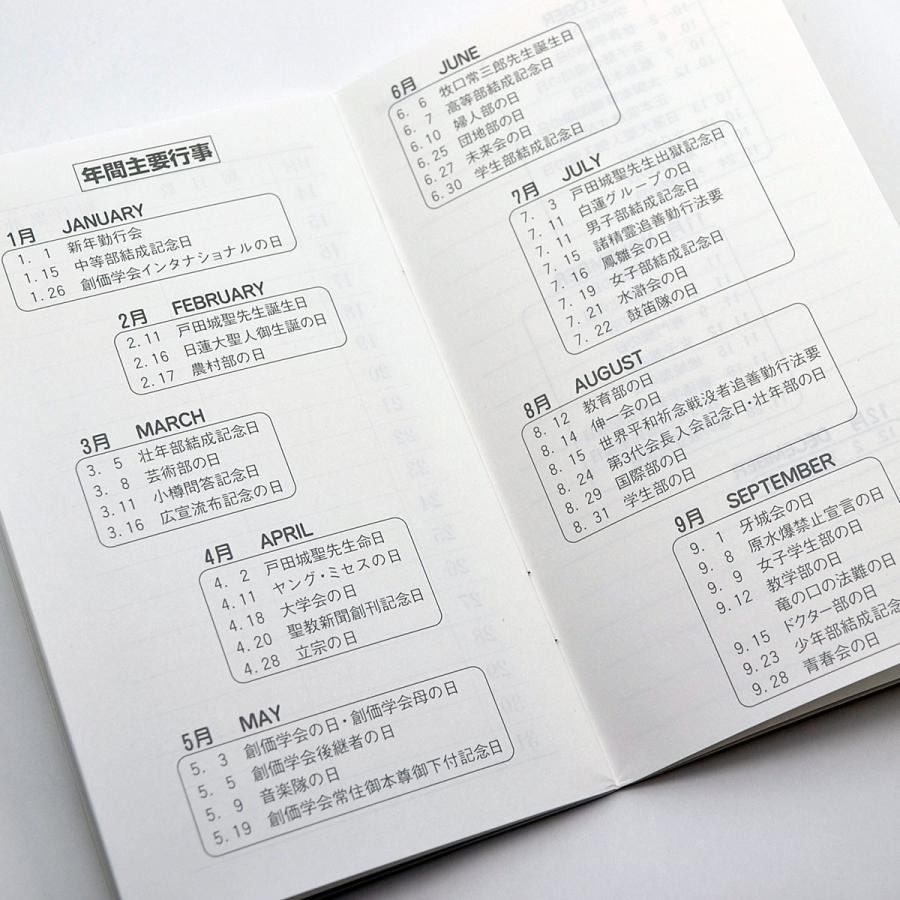 年間主要行事
1月 JANUARY
1. 1 新年勤行会
1.15 中等部結成記念日
1.26 創価学会インタナショナルの日
2月 FEBRUARY
2.11 戸田城聖先生誕生日
2.16 日蓮大聖人御生誕の日
2.17 農村部の日
3月 MARCH
3. 5 壮年部結成記念日
3. 8 芸術部の日
3.11 小樽問答記念日
3.16 広宣流布記念の日
4月 APRIL
4. 2 戸田城聖先生命日
4.11 ヤング・ミセスの日
4.18 大学会の日
4.20 聖教新聞創刊記念日
4.28 立宗の日
5月 MAY
5. 3 創価学会の日・創価学会母の日
5. 5 創価学会後継者の日
5. 9 音楽隊の日
5.19 創価学会常住御本尊御下付記念日
6月 JUNE
6. 6 牧口常三郎先生誕生日
6. 7 高等部結成記念日
6.10 婦人部の日
6.25 団地部の日
6.27 未来会の日
6.30 学生部結成記念日
7月 JULY
7. 3 戸田城聖先生出獄記念日
7.11 白蓮グループの日
7.11 男子部結成記念日
7.15 諸精霊追善勤行法要
7.16 鳳雛会の日
7.19 女子部結成記念日
7.21 水滸会の日
7.22 鼓笛隊の日
8月 AUGUST
8.12 教育部の日
8.14 伸一会の日
8.15 世界平和祈念戦没者追善勤行法要
8.24 第3代会長入会記念日・壮年部の日
8.29 国際部の日
8.31 学生部の日
9月 SEPTEMBER
9. 1 牙城会の日
9. 8 原水爆禁止宣言の日
9. 9 女子学生部の日
9.12 教学部の日
竜の口の法難の日
9.15 ドクター部の日
9.23 少年部結成記念
9.28 青春会の日